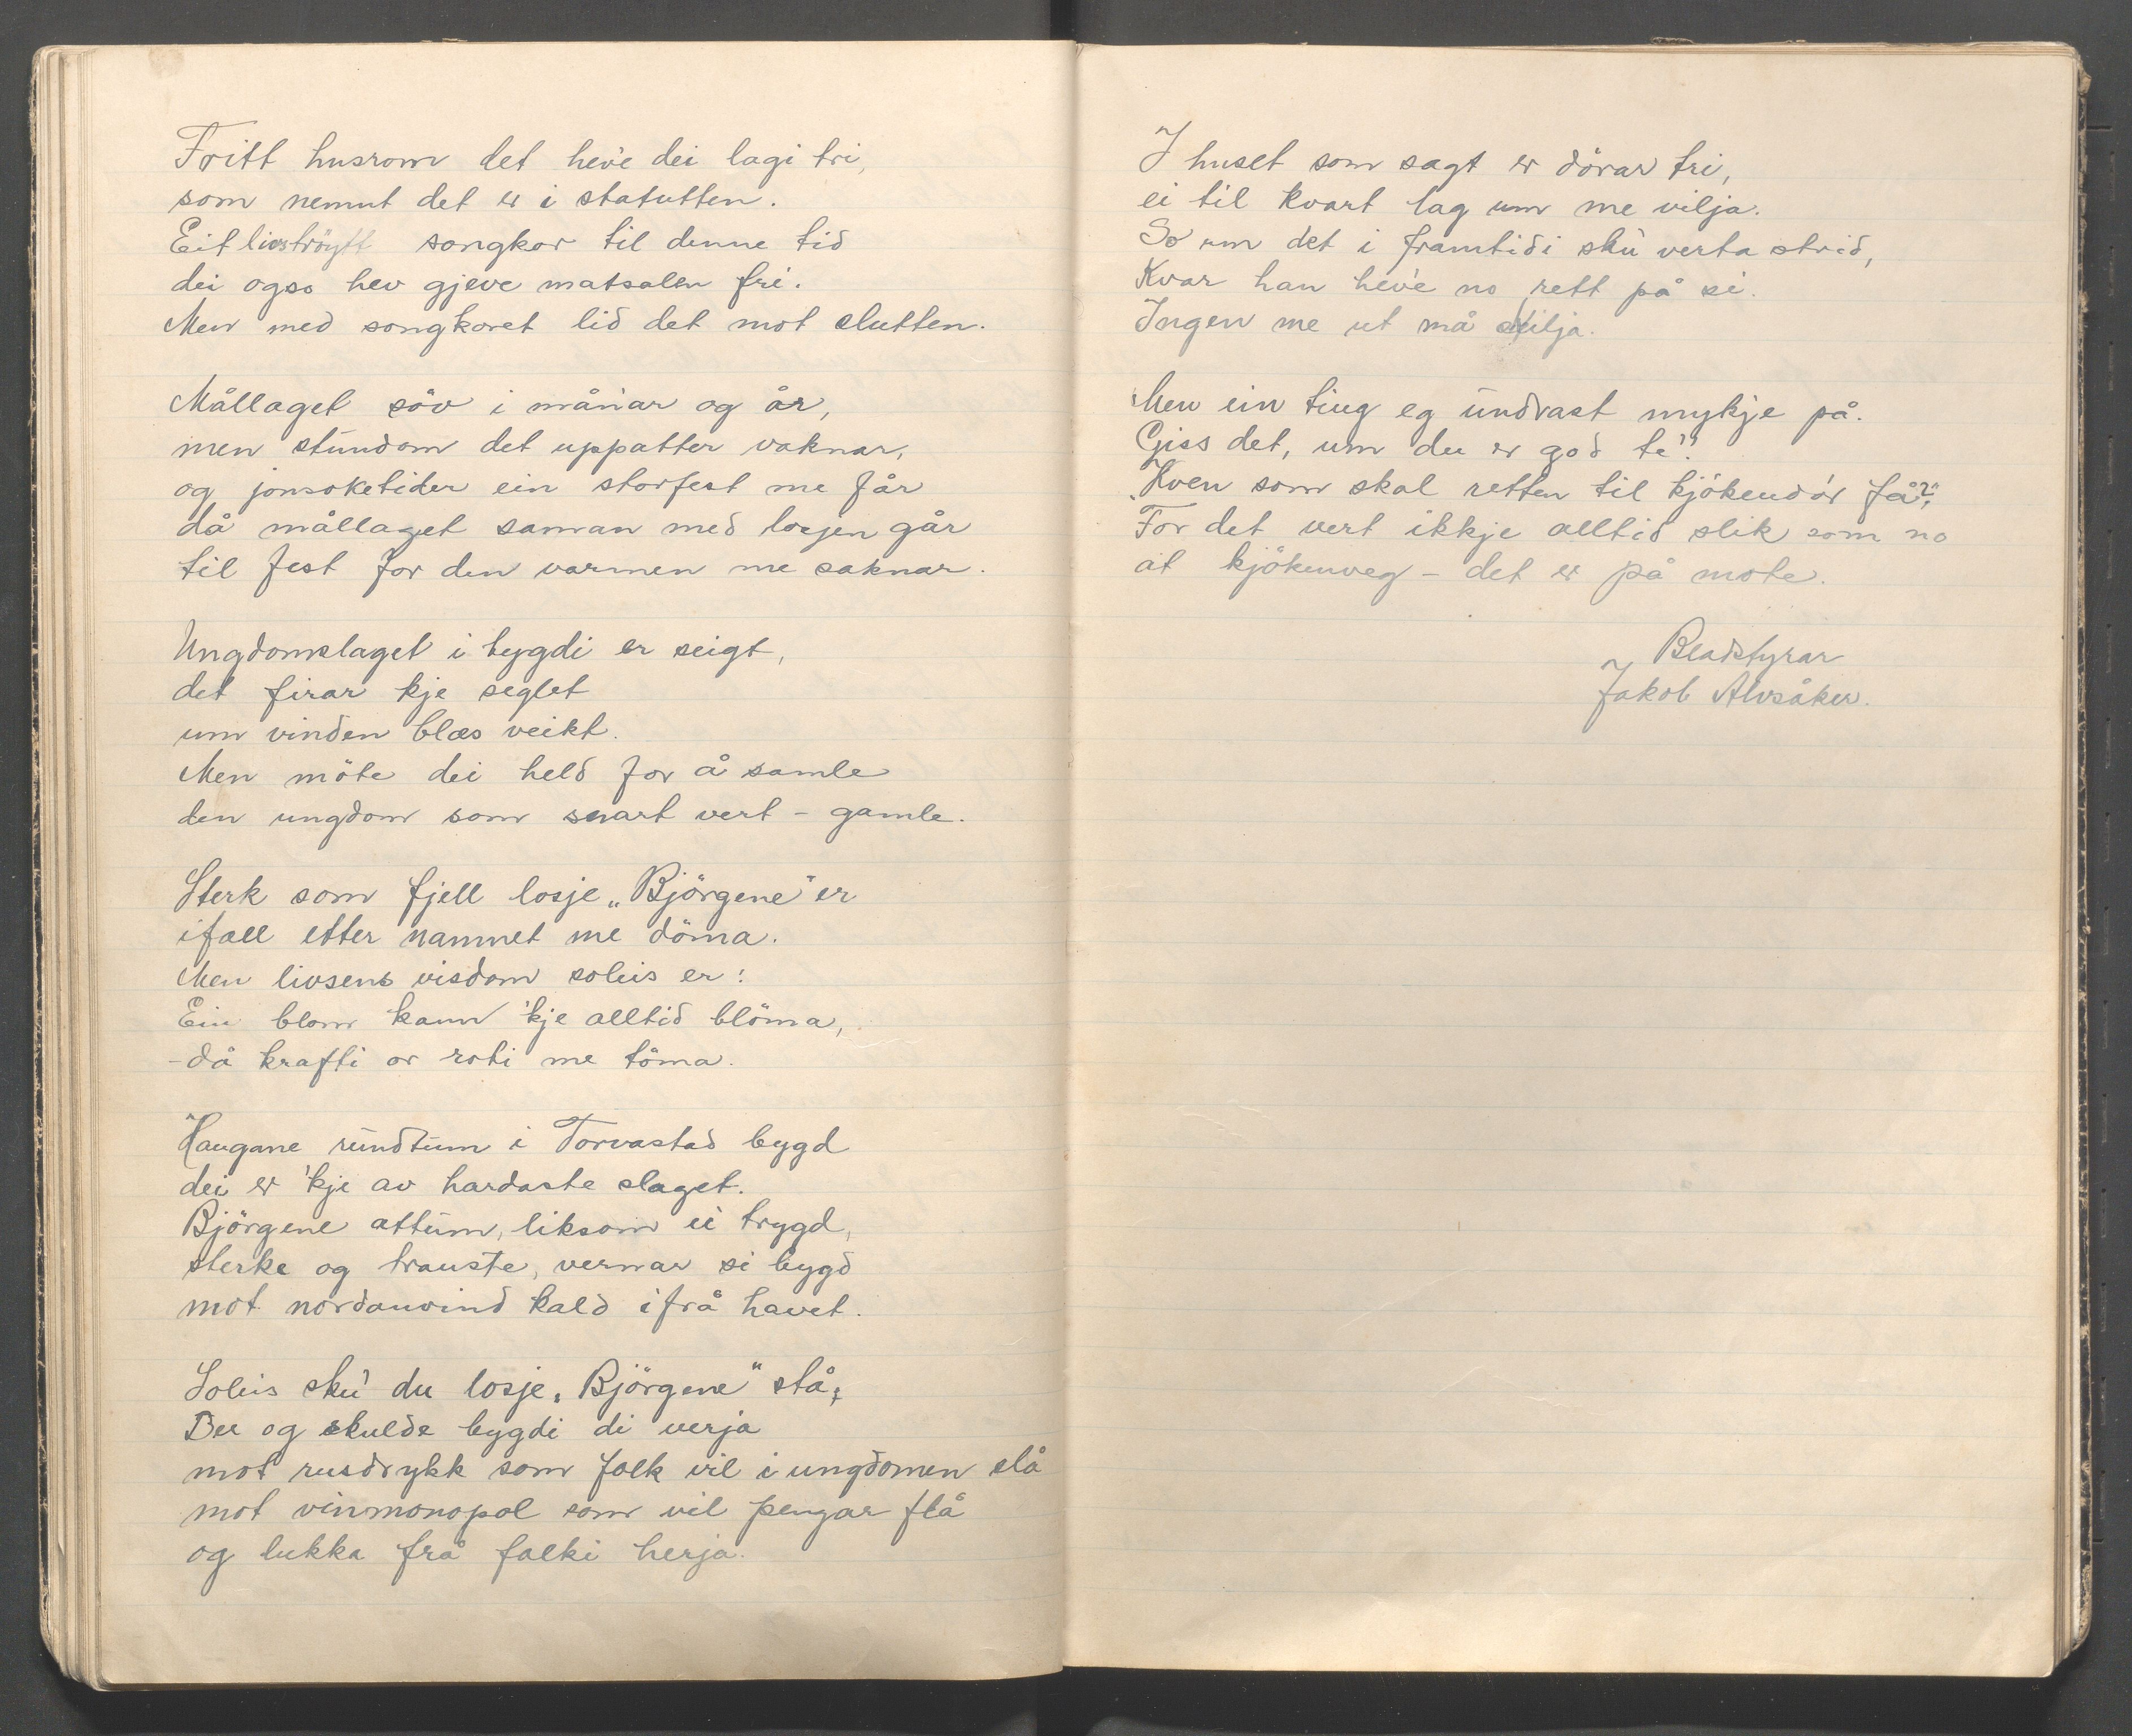 Fritt husrom det heve dei lagi tri,
som nemnt det er i statutten.
Eit livströytt songkor til denne tid
dei ogso hev gjeve matsalen fri.
Men med songkoret lid det mot slutten.
Mållaget söv i månar og år,
men stundom det uppatter vaknar,
og jonsoketider ein storfest me får
då mållaget saman med losjen går
til fest for den varmen me saknar.
Ungdomslaget i bygdi er seigt,
det firar kje seglet
um vinden blæs veikt.
Men möte dei held for å samle
den ungdom som snart vert - gamle.
Sterk som fjell losje „Björgene" er
ifall etter namnet me döma.
Men livsens visdom soleis er:
Ein blom kann 'kje alltid blöma,
- då krafti or roti me töma.
Haugane rundtum i Torvastad bygd
dei er 'kje av hardaste slaget.
Björgene attum, liksom ei trygd,
sterke og trauste, vernar si bygd
mot nordanvind kald ifrå havet.
Soleis sku' du losje „Björgene" stå,
Du og skulde bygdi di verja
mot rusdrykk som folk vil i ungdomen slå
mot vinmonopol som vil pengar flå
og lukka frå folki herja.
I huset som sagt er dörar tri,
ei til kvart lag um me vilja.
So um det i framtidi sku verta strid,
Kvar han heve no rett på si.
Ingen me ut må skilja.
Men ein ting eg undrast mykje på.
Giss det, um du er god te'!
„Kven som skal retten til kjökendör få?"
For det vert ikkje alltid slik som no
at kjökenveg - det er på mote.
Bladstyrar
Jakob Alvsåker.